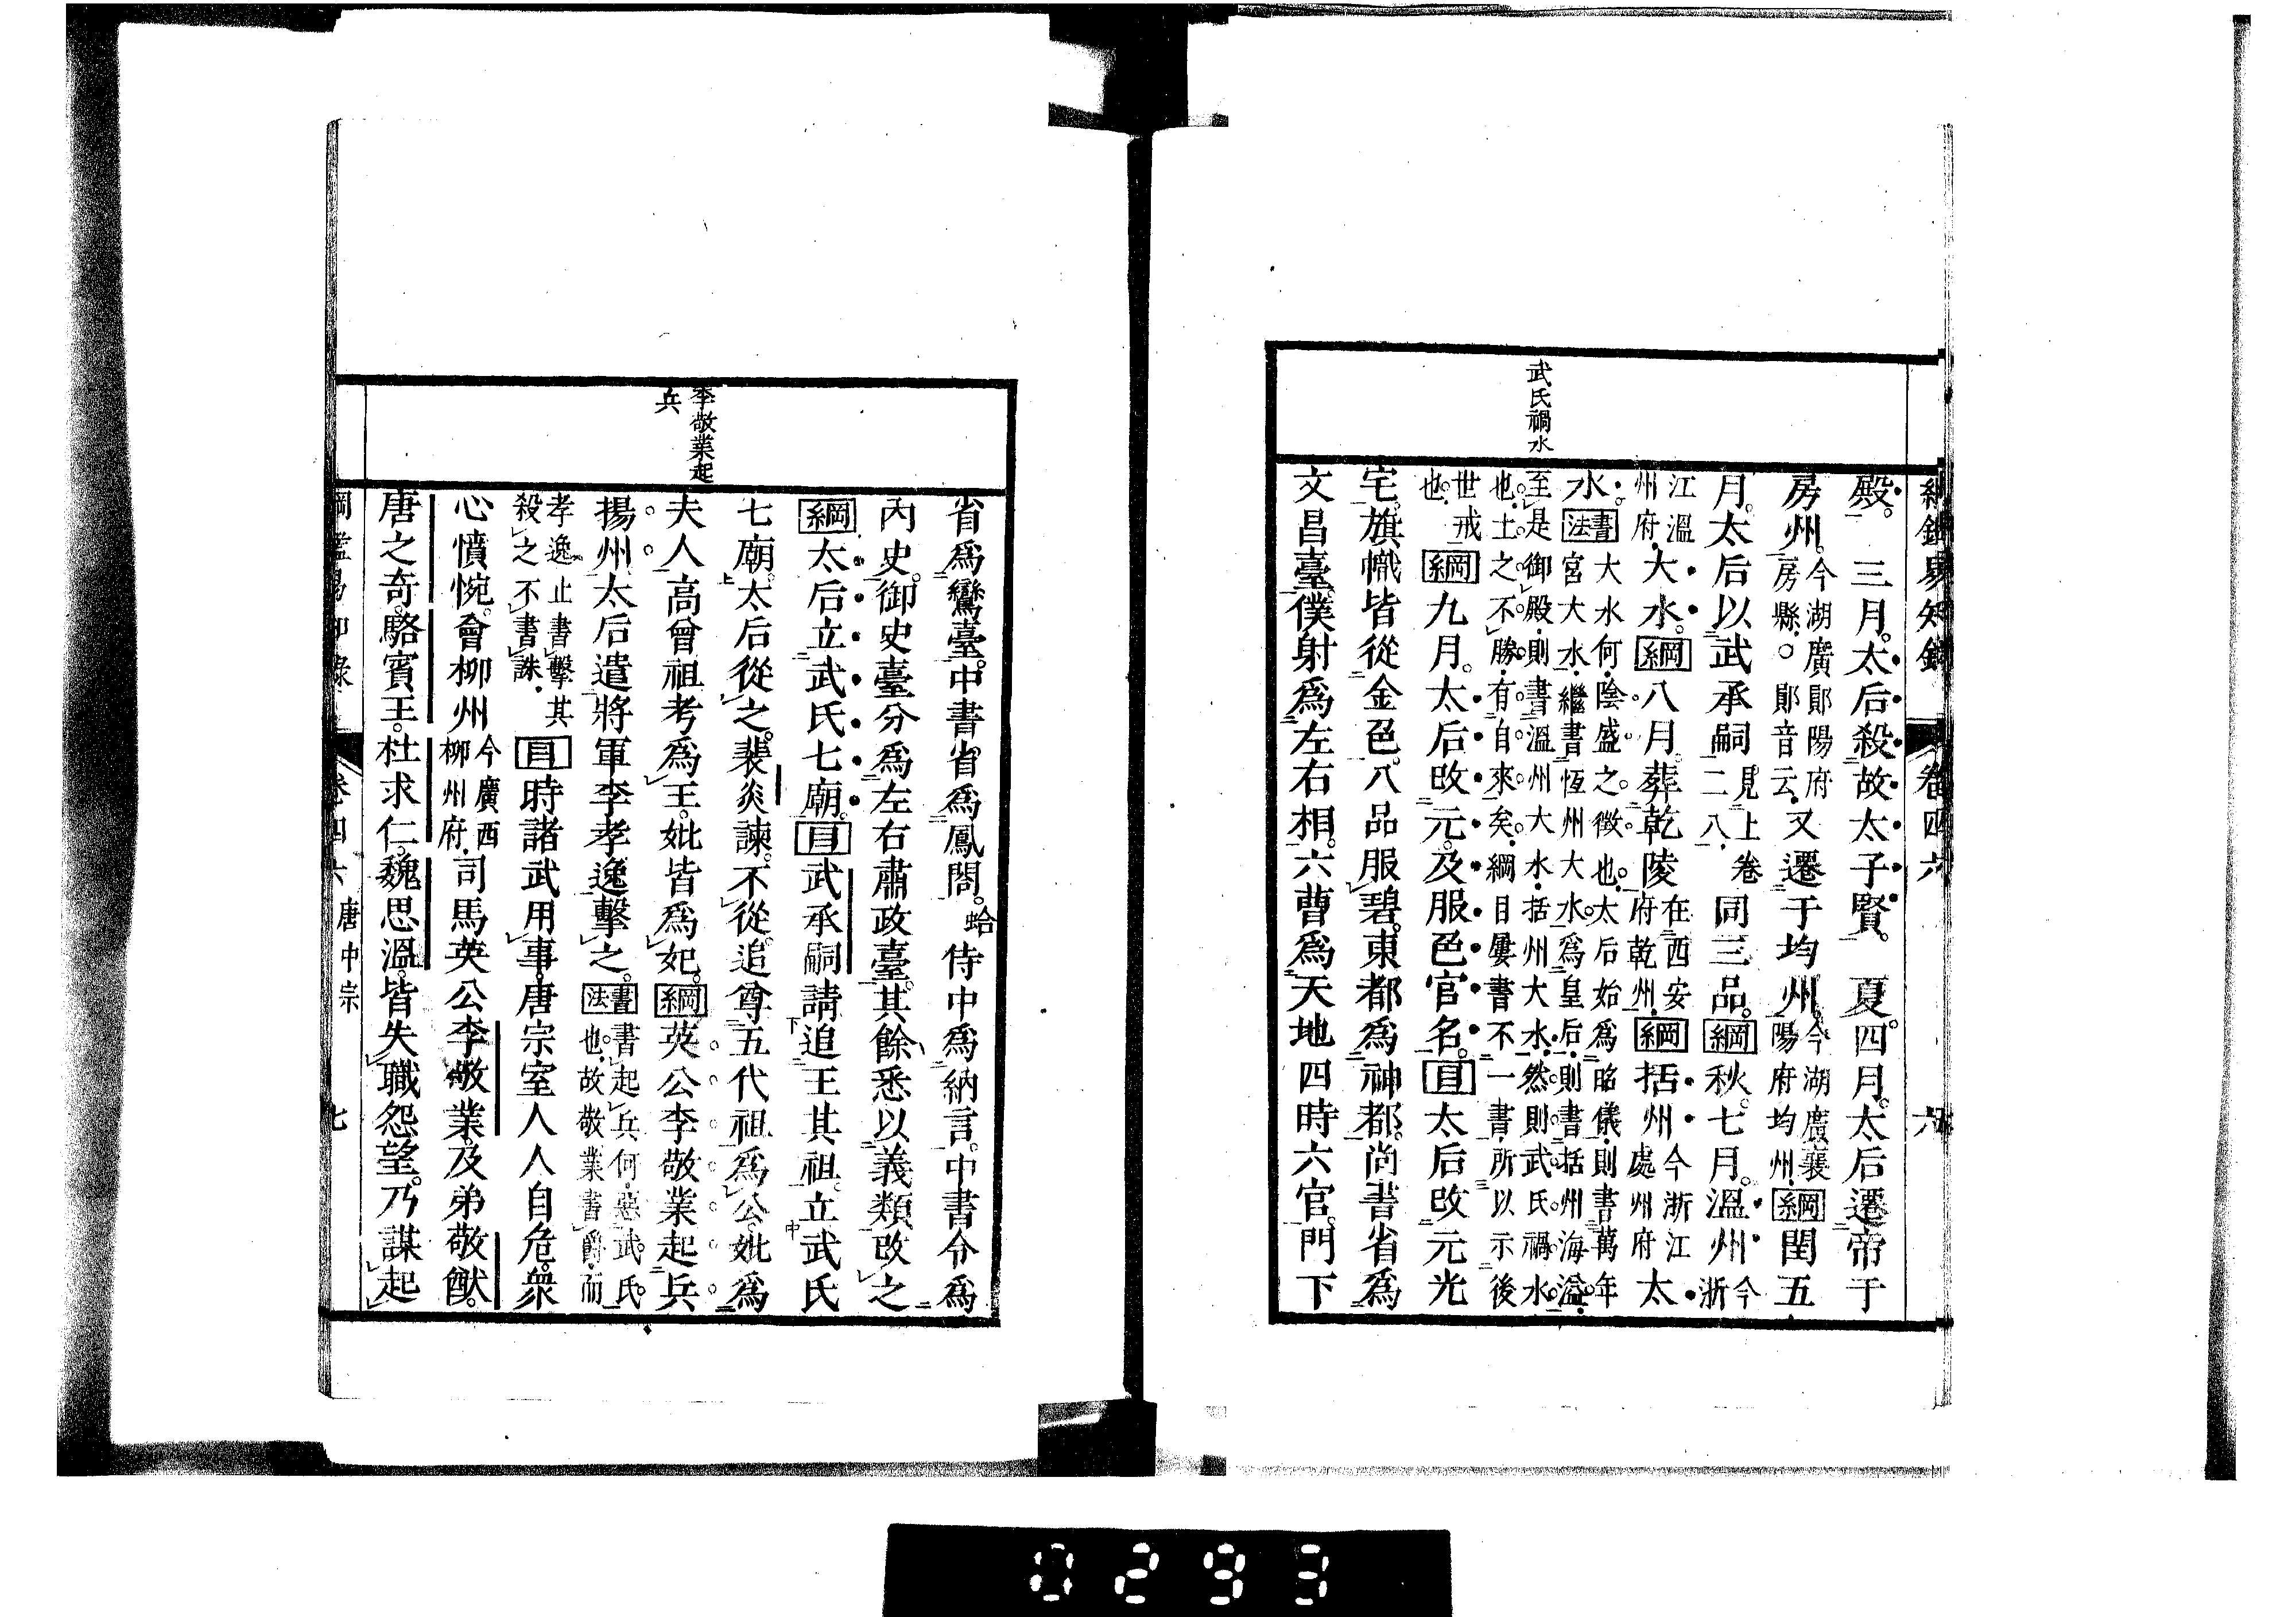 綱鑑易知錄 卷四六 六
武氏禍水
殿。三月。太后殺故太子賢。夏。四月。太后遷帝于
房州。今湖廣鄖陽府房縣。○鄖音云。又遷于均州。今湖廣襄陽府均州。綱閏五
月。太后以武承嗣見上卷二八。同三品。綱秋。七月。溫州今浙
江溫州府。大水。綱八月。葬乾陵在西安府乾州。綱括州今浙江處州府大
水。書法大水何。陰盛之徵也。太后始爲昭儀。則書萬年宮大水。繼書恆州大水。爲皇后。則書括州海溢。
至是御殿。則書溫州大水。括州大水。然則武氏禍水也。土之不勝。有自來矣。綱目屢書不一書。所以示後
世戒也。綱九月。太后改元。及服色官名。目太后改元光
宅。旗幟皆從金色。八品服碧。東都爲神都。尚書省爲
文昌臺。僕射爲左右相。六曹爲天地四時六官。門下
李敬業起兵
省爲鸞臺。中書省爲鳳閣。蛤侍中爲納言。中書令爲
內史。御史臺分爲左右肅政臺。其餘悉以義類改之
綱太后立武氏七廟。目武承嗣請追王其祖。立武氏
七廟。太后從之。裴炎諫。不從。追尊五代祖爲公。妣爲
夫人高曾祖考爲王。妣皆爲妃。綱英公李敬業起兵
揚州太后遣將軍李孝逸擊之。書法書起兵何。惡武氏也。故敬業書爵。而
孝逸止書擊其殺之不書誅。目時諸武用事。唐宗室人人自危。衆
心憤惋。會柳州今廣西柳州府。司馬英公李敬業。及弟敬猷。
唐之奇。駱賓王。杜求仁。魏思溫。皆失職怨望。乃謀起
綱鑑易知錄 卷四六 唐中宗 七
0293